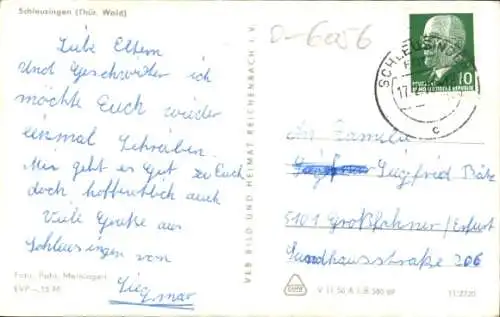 Schleusingen (Thür. Wald)
Liebe Eltern
und Geschwister ich
möchte Euch wieder
einmal Schreiben.
Mir geht es Gut zu Euch
doch hoffentlich auch
Viele Grüße aus
Schleusingen von
Siegmar
Foto: Pahl, Meiningen
EVP -,15 M
VEB BILD UND HEIMAT REICHENBACH i. V.
D-6056
SCHLEUSINGEN
17.
c
10
An Familie
Siegfried
5101 Großfahner/Erfurt
Sundhausstraße 206
V 11 50 A 1/B 580/69